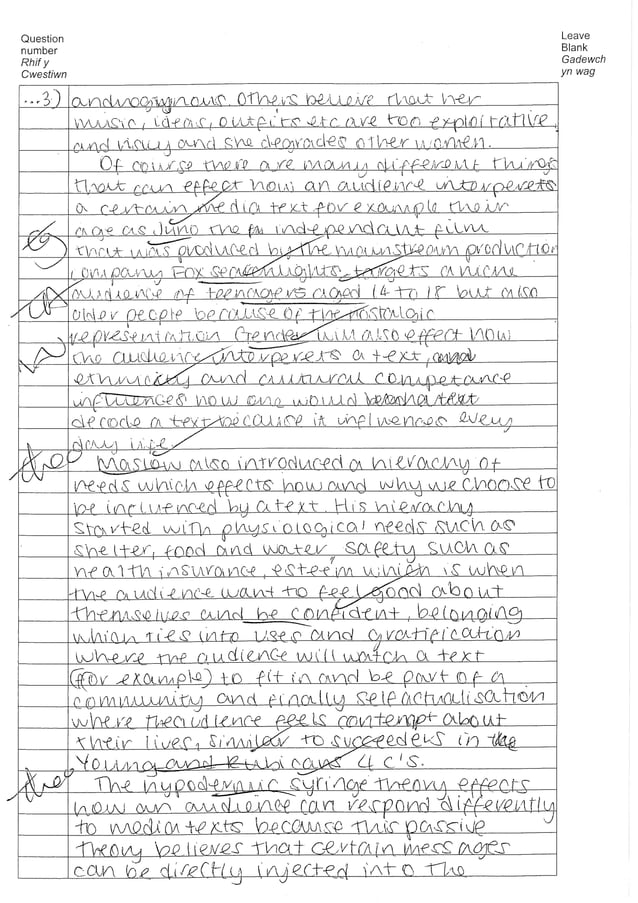 Question
number
Rhif y
Cwestiwn
Leave
Blank
Gadewch
yn wag
...3) androgynous. Others believe that her
music, ideas, outfits etc are too exploitative
and risky and she degrades other women.
Of course there are many different things
that can effect how an audience interperets
a certain media text for example their
age as Juno the independant film
that was produced by the mainstream production
company Fox searchlights, targets a niche
audience of teenagers aged 14 to 18 but also
older people because of the nostalgic
representation Gender will also effect how
the audience interperets a text, and
ethnicity and cultural competance
influences how one would
decode a text because it influences every
day life.
theo Maslow also introduced a hierachy of
needs which effects how and why we choose to
be influenced by a text. His hierachy
started with physiological needs such as
shelter, food and water, safety such as
health insurance, esteem which is when
the audience want to feel good about
themselves and be confident, belonging
which ties into uses and gratification
where the audience will watch a text
(for example) to fit in and be part of a
community and finally self actualisation
where the audience feels contempt about
their lives, similar to succeeders in the
Young and Rubicams 4 C's.
theo The hypodermic syringe theory effects
how an audience can respond differently
to media texts because this passive
theory believes that certain messages
can be directly injected into the